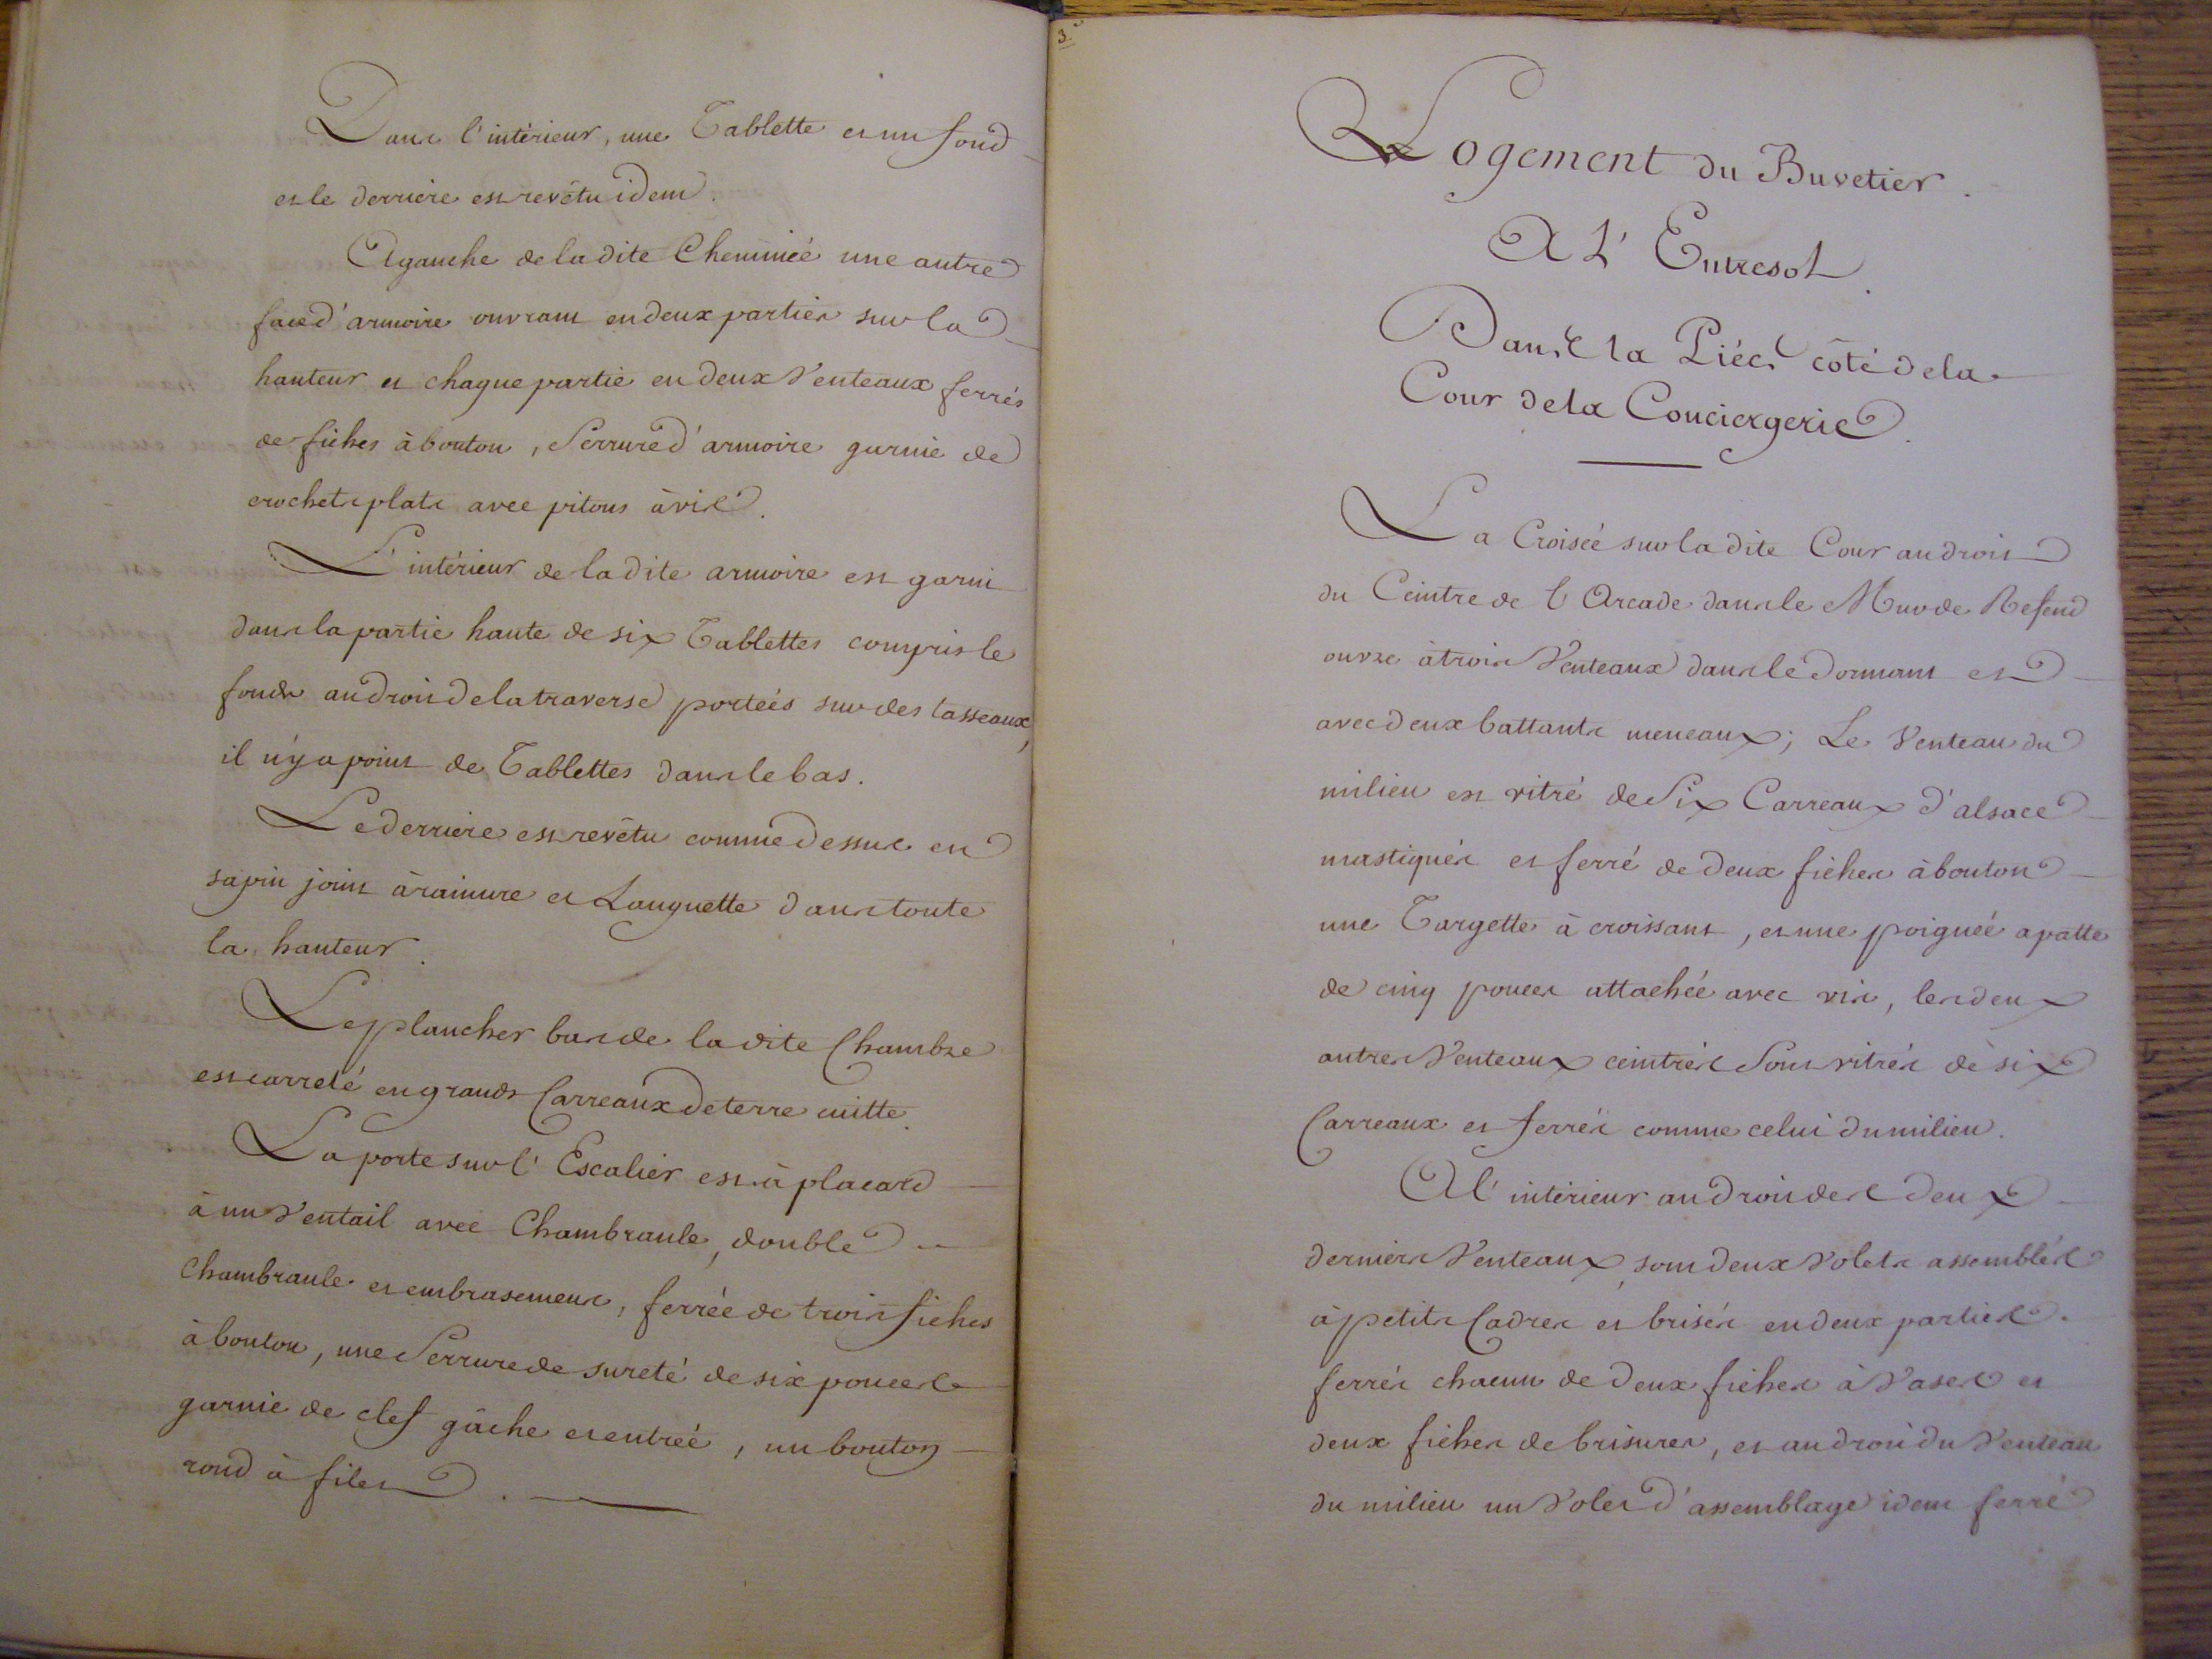 Dans l'intérieur, une Tablette et un fond
et le derriere est revêtu idem.
A gauche de la dite Cheminéé une autre
face d'armoire ouvrant en deux parties sur la
hauteur et chaque partie en deux Venteaux ferrés
de fiches à bouton, Serrure d'armoire garnie de
crochets plats avec pitons à vis.
L'intérieur de la dite armoire est garni
dans la partie haute de six Tablettes compris le
fonds au droit de la traverse portéés sur des tasseaux,
il n'y a point de Tablettes dans le bas.
Le derriere est revêtu comme dessus en
sapin joint à rainure et Languette dans toute
la hauteur.
Le plancher bas de la dite Chambre
est carrelé en grands Carreaux de terre cuitte.
La porte sur l'Escalier est à placard
à un Ventail avec Chambranle, double
Chambranle et embrasement, ferrée de trois fiches
à bouton, une Serrure de sureté de six pouces
garnie de clef gâche et entréé, un bouton
rond à filet.
3.
Logement du Buvetier.
A L'Entresol.
Dans la Piéce côté de la
Cour de la Conciergerie.
La Croisée sur la dite Cour au droit
du Ceintre de l'Arcade dans le Mur de Refend
ouvre à trois Venteaux dans le dormant et
avec deux battants meneaux; Le Venteau du
milieu est vitré de Six Carreaux d'alsace
mastiqués et ferré de deux fiches à bouton
une Targette à croissant, et une poignéé a patte
de cinq pouces attachée avec vis, les deux
autres Venteaux ceintrés Sont vitrés de six
Carreaux et ferrés comme celui du milieu.
A l'intérieur au droit des deux
derniers Venteaux, sont deux Volets assemblés
à petits Cadres et brisés en deux parties.
ferrés chacun de deux fiches à Vases et
deux fiches de brisures, et au droit du Venteau
du milieu un Volet d'assemblage idem ferré